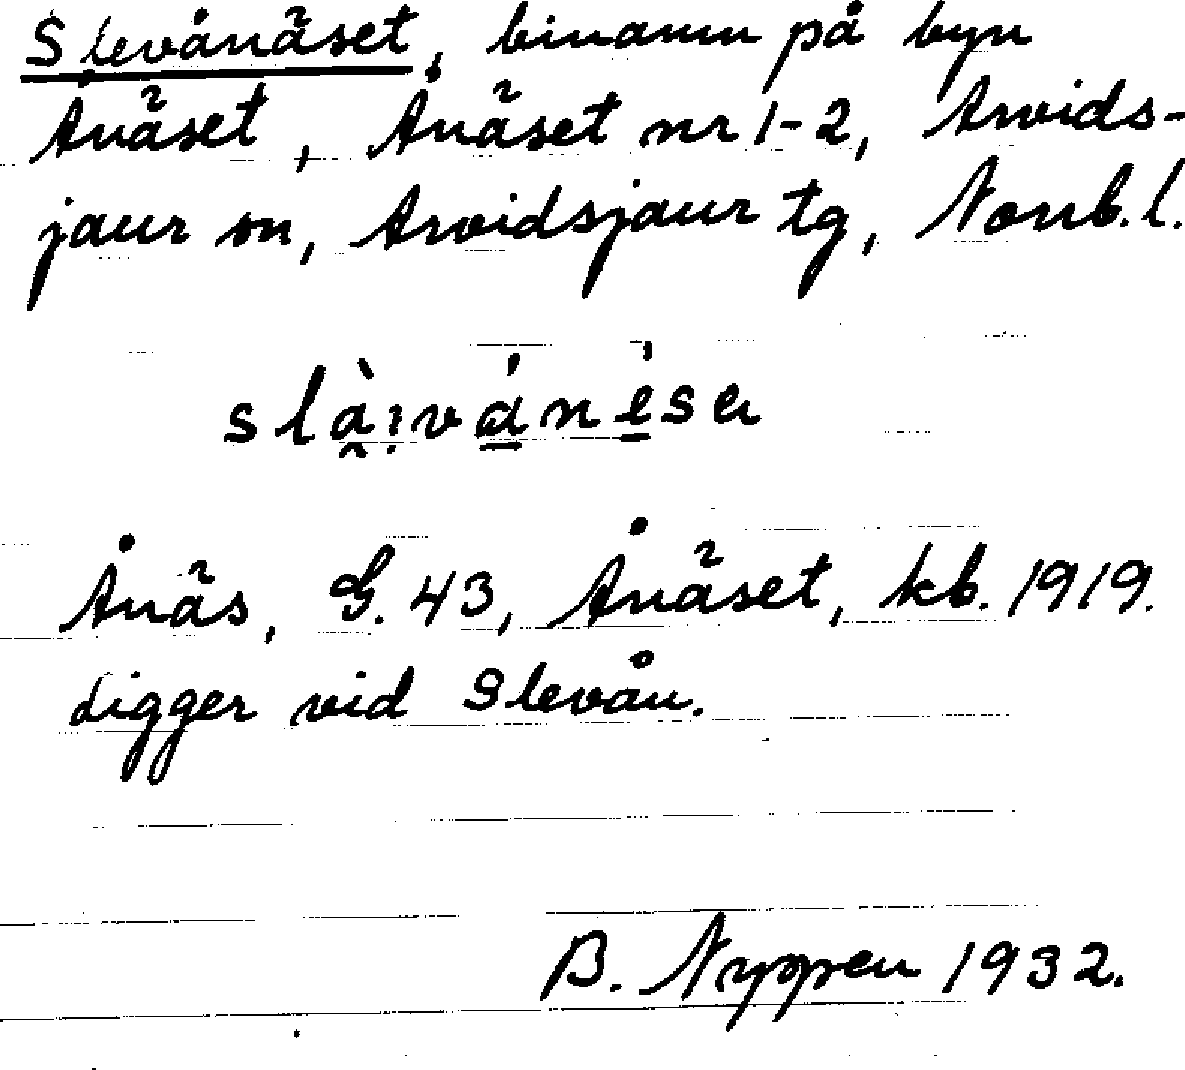 Slevånäset, binamn på byn
Ånäset, Ånäset nr 1-2, Arvids-
jaur sn, Arvidsjaur tg, Norrb. l.
Ånäs, G. 43, Ånäset, kb. 1919.
Ligger vid Slevån.
B. Nyppen 1932.